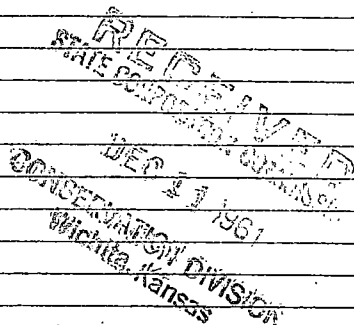 RECEIVED
STATE CORPORATION COMMISSION
DEC 11 1961
CONSERVATION DIVISION
Wichita, Kansas